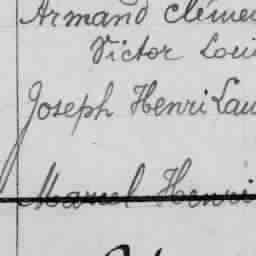 Armand Cléme
Victor Loui
Joseph Henri Lau
Marcel Henri